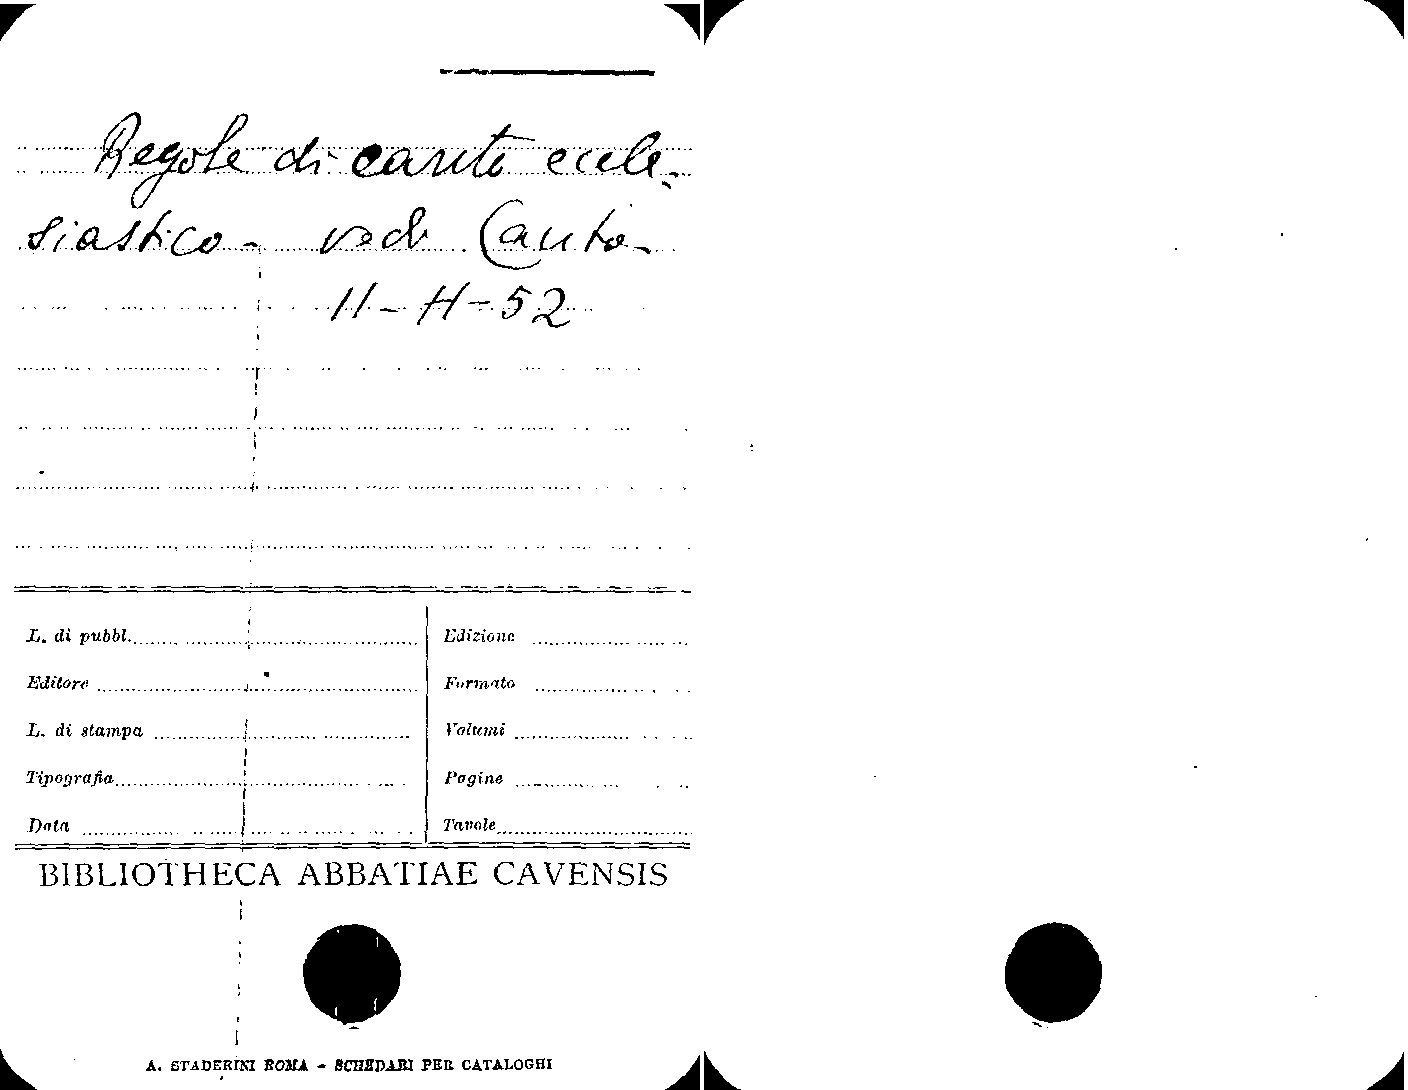 Regole di canto eccle-
siastico - vedi Canto -
II - H - 52
L. di pubbl.
Edizione
Editore
Formato
L. di stampa
Volumi
Tipografia
Pagine
Data
Tavole
BIBLIOTHECA ABBATIAE CAVENSIS
A. STADERINI ROMA - SCHEDARI PER CATALOGHI